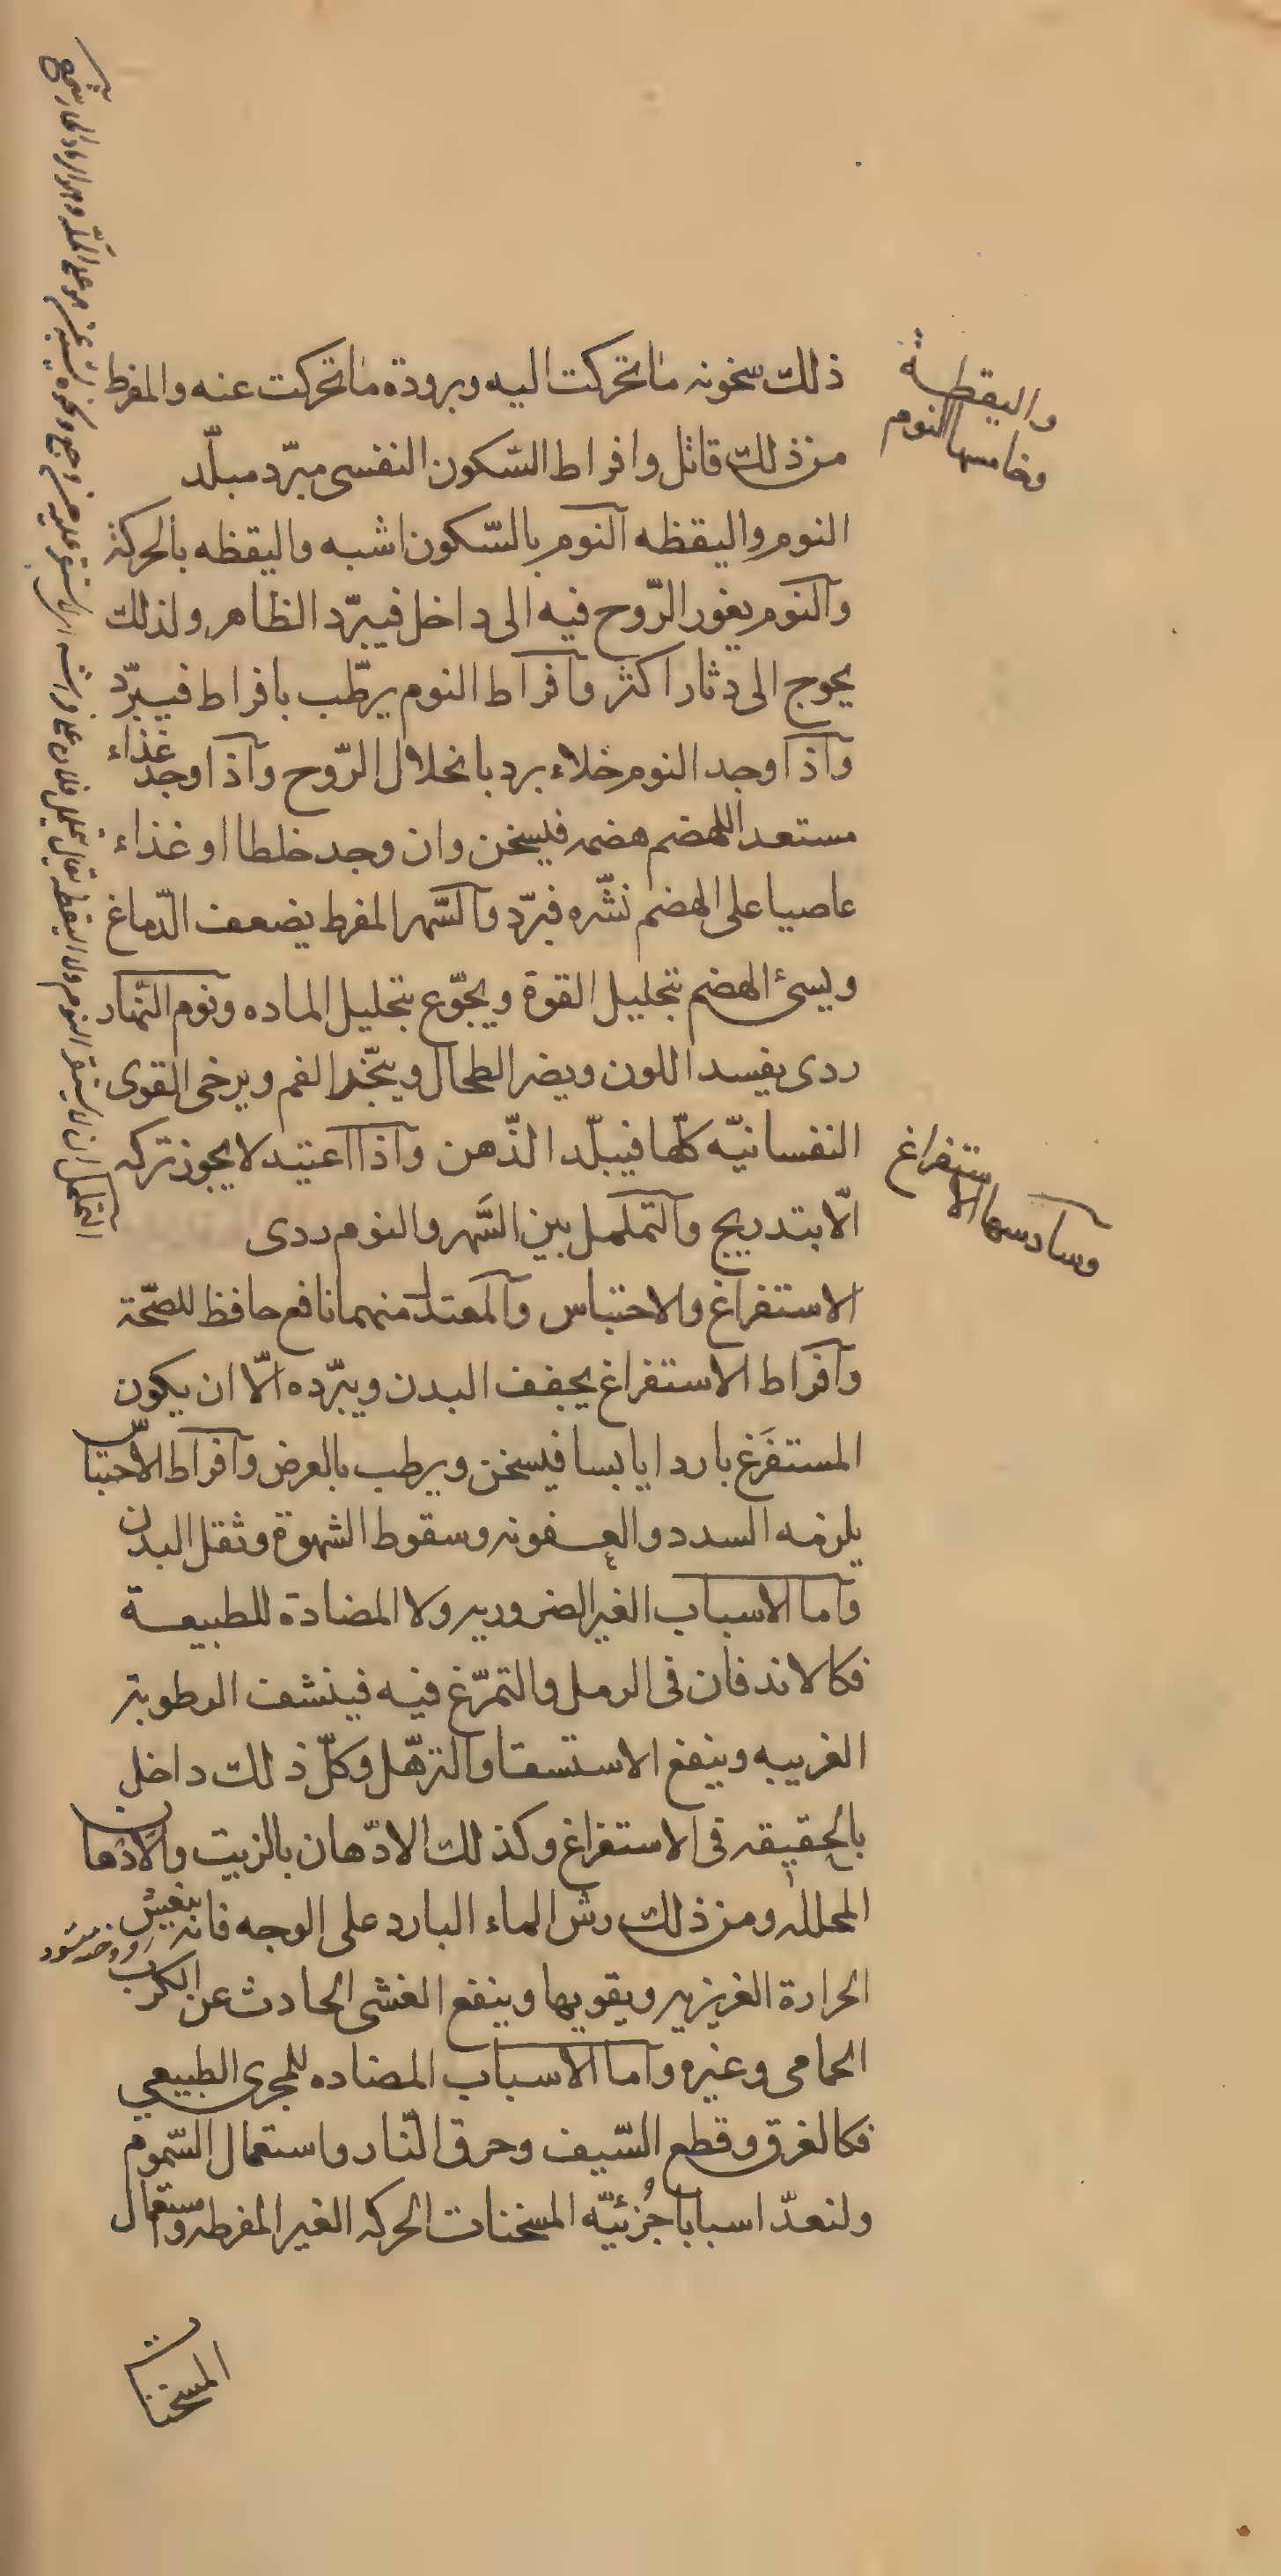 ذلك سخونه ما تحركت اليه وبرودة ما تحركت عنه والمفرط
من ذلك قاتل وافراط السّكون النفسى مبرّد مبلّد
النوم واليقظه النوم بالسّكون اشبه واليقظه بالحركة
والنوم يغور الرّوح فيه الى داخل فيبرّد الظاهر ولذلك
يحوج الى دثار اكثر وافراط النوم يرطّب بافراط فيبرّد
واذا وجد النوم خلاء برد بانحلال الرّوح واذا وجد غذاء
مستعدا للهضم هضمه فيسخن وان وجد خلطا او غذاء
عاصيا على الهضم نشّره فبرّد والسّهر المفرط يضعف الدّماغ
ويسئ الهضم بتحليل القوة ويجوّع بتحليل الماده ونوم النّهار
ردى يفسد اللون ويضر الطحال ويبخّر الفم ويرخى القوى
النفسانيّه كلّها فيبلّد الذّهن واذا اعتيد لا يجوز تركه
الّا بتدريج والتململ بين السَّهر والنوم ردى
الاستفراغ والاحتباس والمعتدل منهما نافع حافظ للصّحّة
وافراط الاستفراغ يجفف البدن ويبرّده الّا ان يكون
المستفرَغ باردا يابسا فيسخن ويرطب بالعرض وافراط الاحتباس
يلزمه السدد والعفونه وسقوط الشهوة وثقل البدن
واما الاسباب الغير الضروريه ولا المضادة للطبيعة
فكالاندفان فى الرمل والتمرّغ فيه فينشف الرطوبة
الغريبه وينفع الاستسقا والترهّل وكلّ ذلك داخل
بالحقيقه فى الاستفراغ وكذلك الادّهان بالزيت والادهان
المحلله ومن ذلك رش الماء البارد على الوجه فانه ينعش
الحرارة الغريزيه ويقويها وينفع الغشى الحادث عن الكرب
الحمامى وغيره واما الاسباب المضاده للمجرى الطبيعي
فكالغرق وقطع السّيف وحرق النّار واستعمال السّموم
ولنعدّ اسبابا جُزئيّه المسخنات الحركه الغير المفرطه واستعمال
المسخنات
واليقظة
وخامسها النوم
وسادسها الاستفراغ